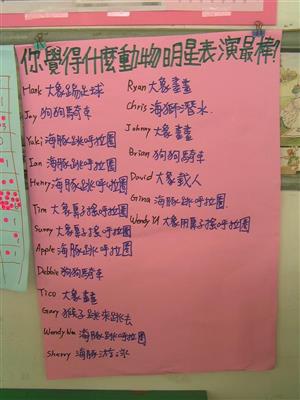 你覺得什麼動物明星表演最棒?
Mark 大象踢足球
Jay 狗狗騎車
Yuki 海豚跳呼拉圈
Ian 海豚跳呼拉圈
Henry 海豚跳呼拉圈
Tim 大象鼻子搖呼拉圈
Sunny 大象鼻子搖呼拉圈
Apple 海豚跳呼拉圈
Debbie 狗狗騎車
Tico 大象畫畫
Gary 猴子跳來跳去
Wendy Wu 海豚跳呼拉圈
Sherry 海豚游泳
Ryan 大象畫畫
Chris 海獅潛水
Johnny 大象畫畫
Brian 狗狗騎車
David 大象載人
Gina 海豚跳呼拉圈
Wendy 大象用鼻子搖呼拉圈